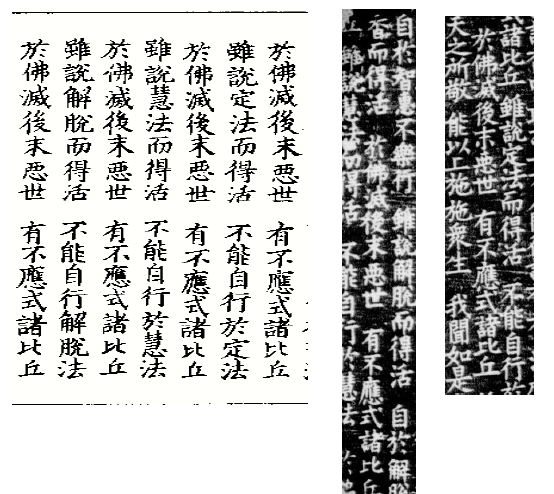 於佛滅後末悪世 有不應式諸比丘
雖說定法而得活 不能自行於定法
於佛滅後末悪世 有不應式諸比丘
雖說慧法而得活 不能自行於慧法
於佛滅後末悪世 有不應式諸比丘
雖說解脫而得活 不能自行解脫法
於佛滅後末悪世 有不應式諸比丘
自於智慧不樂行 雖說解脫而得活 自於解脫
香而得活 於佛滅後末悪世 有不應式諸比丘
雖說慧法而得活 不能自行於慧法
諸比丘 雖說定法而得活 不能自行於
於佛滅後末悪世 有不應式諸比丘
天之所敬 能以上施施衆生 我聞如是